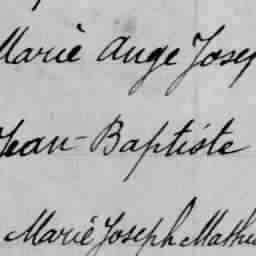 Marie Ange Josep
Jean-Baptiste
Marie Joseph Mathi